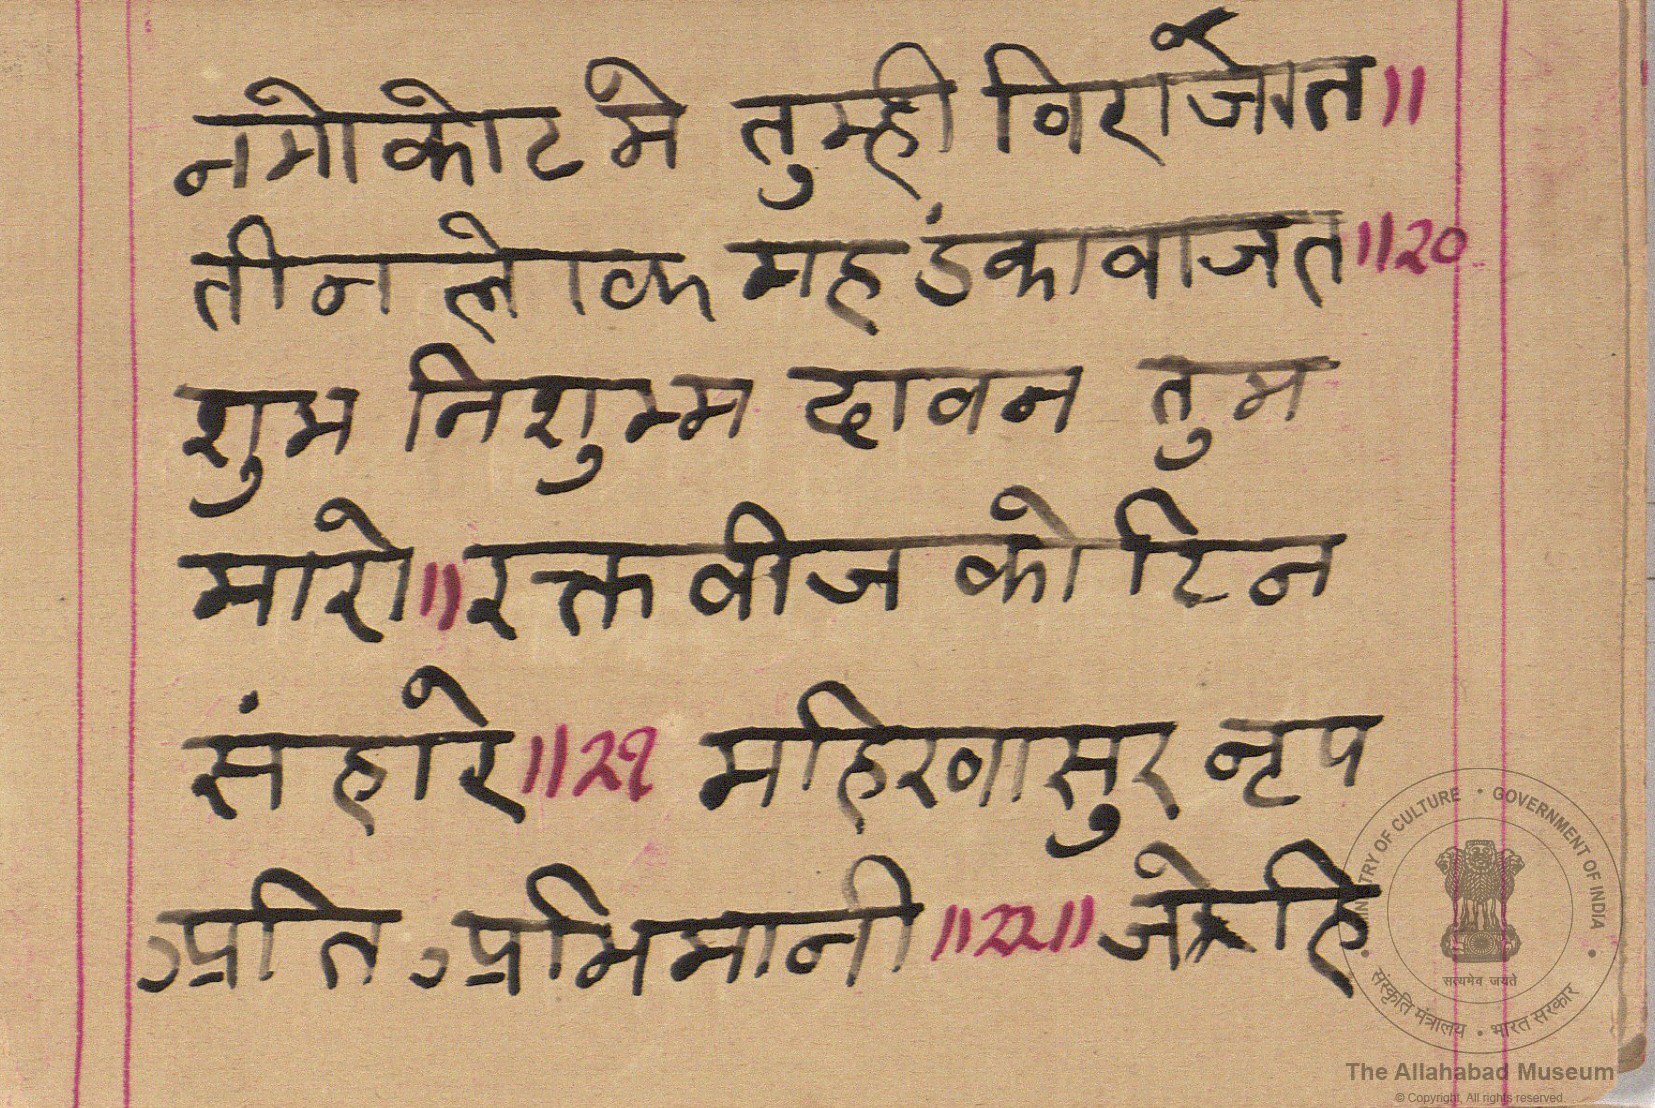 नगोकोट मे तुम्ही विराजत॥
तीन लोक मह डंका वाजत॥२०
शुम निशुम्म दावन तुम
मारो॥रक्त वीज को रिन
संहारे॥२१ महिरवासुर नृप
अति अभिमानी॥२२॥ जेहि
MINISTRY OF CULTURE • GOVERNMENT OF INDIA
सत्यमेव जयते
संस्कृति मंत्रालय • भारत सरकार
The Allahabad Museum
© Copyright, All rights reserved.